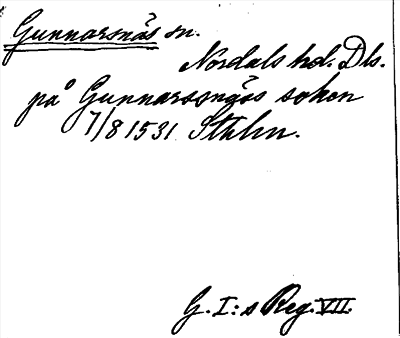 Gunnarsnäs sn.
Nordals hd. Dls.
på Gunnarsnäs soken
7/8 1531 Sthlm.
G. I:s Reg. VII.